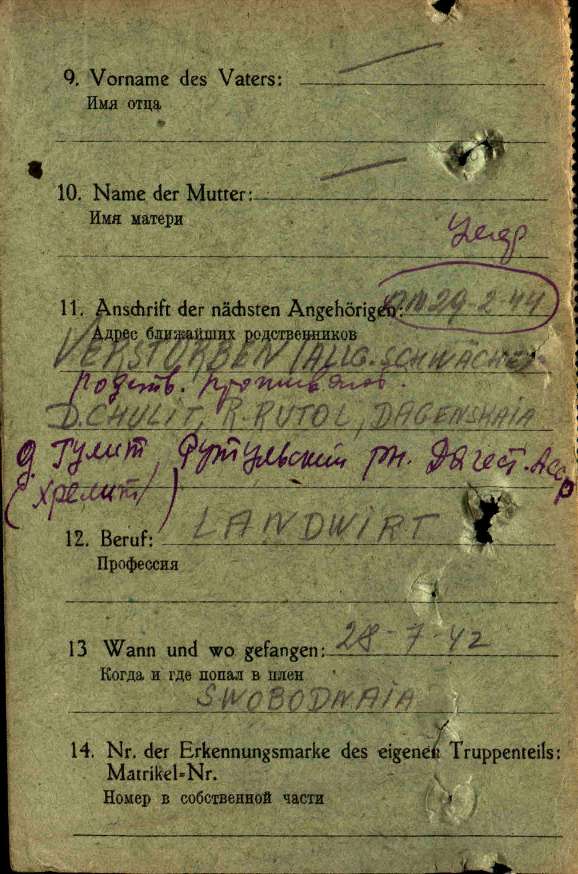 9. Vorname des Vaters: —
Имя отца
10. Name der Mutter: —
Имя матери
умер
11. Anschrift der nächsten Angehörigen: am 29-2-44
Адрес ближайших родственников
VERSTORBEN (ALLG. SCHWÄCHE)
родств. проживают.
D. CHULIT, R. RUTOL, DAGENSKAIA
д. Гулит, Рутульский рн. Дагест. Асср
(Хрелит)
12. Beruf: LANDWIRT
Профессия
13 Wann und wo gefangen: 28-7-42
Когда и где попал в плен
SWOBODNAIA
14. Nr. der Erkennungsmarke des eigenen Truppenteils:
Matrikel-Nr.
Номер в собственной части